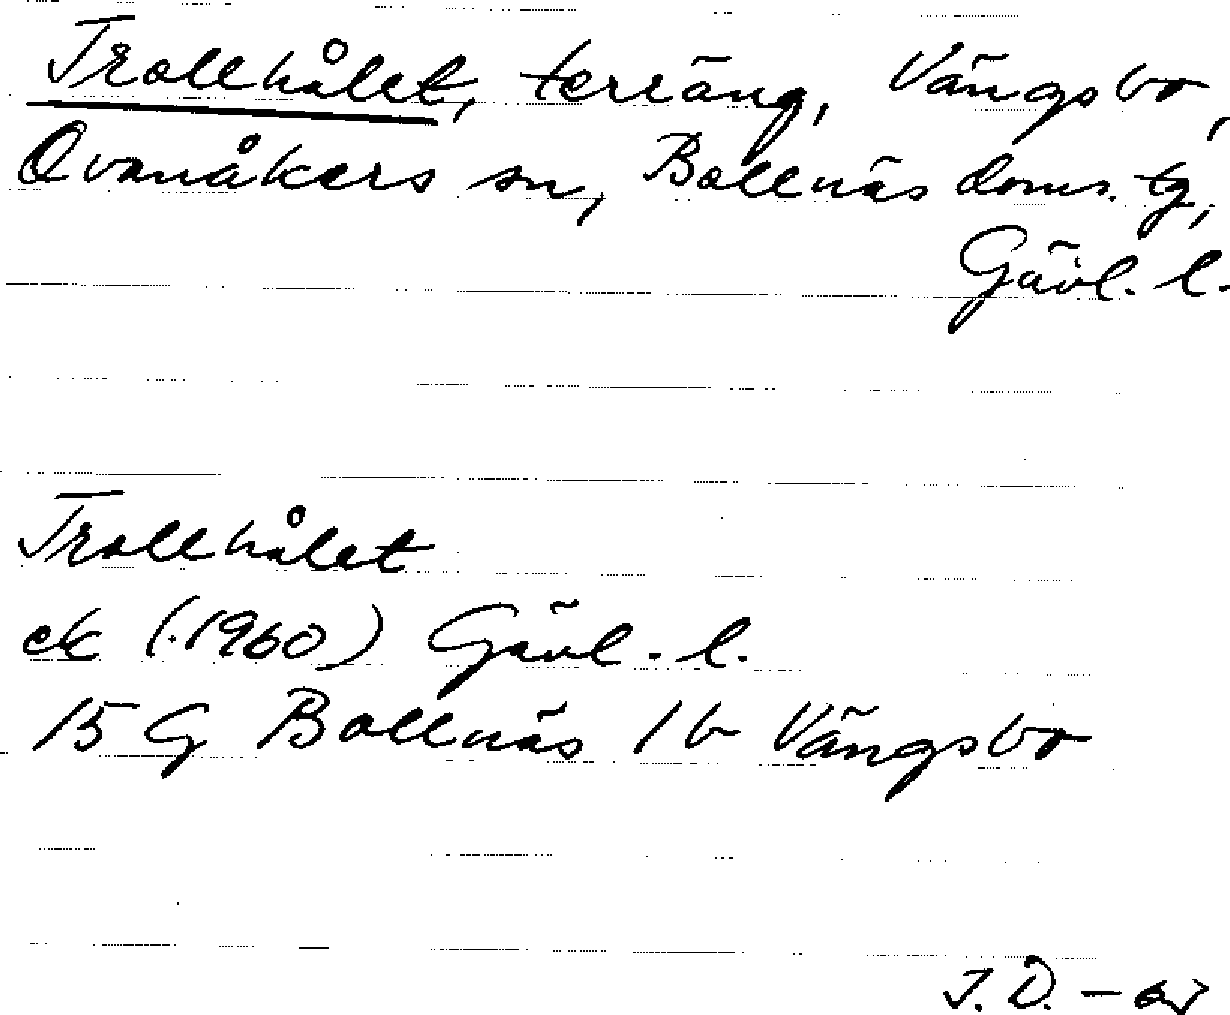 Trollhålet, terräng, Vängsbo,
Ovanåkers sn, Bollnäs doms. tg,
Gävl. l.
Trollhålet
ek (.1960) Gävl. l.
15 G Bollnäs 1 b Vängsbo